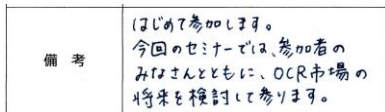 備考
はじめて参加します。
今回のセミナーでは、参加者の
みなさんとともに、OCR市場の
将来を検討して参ります。